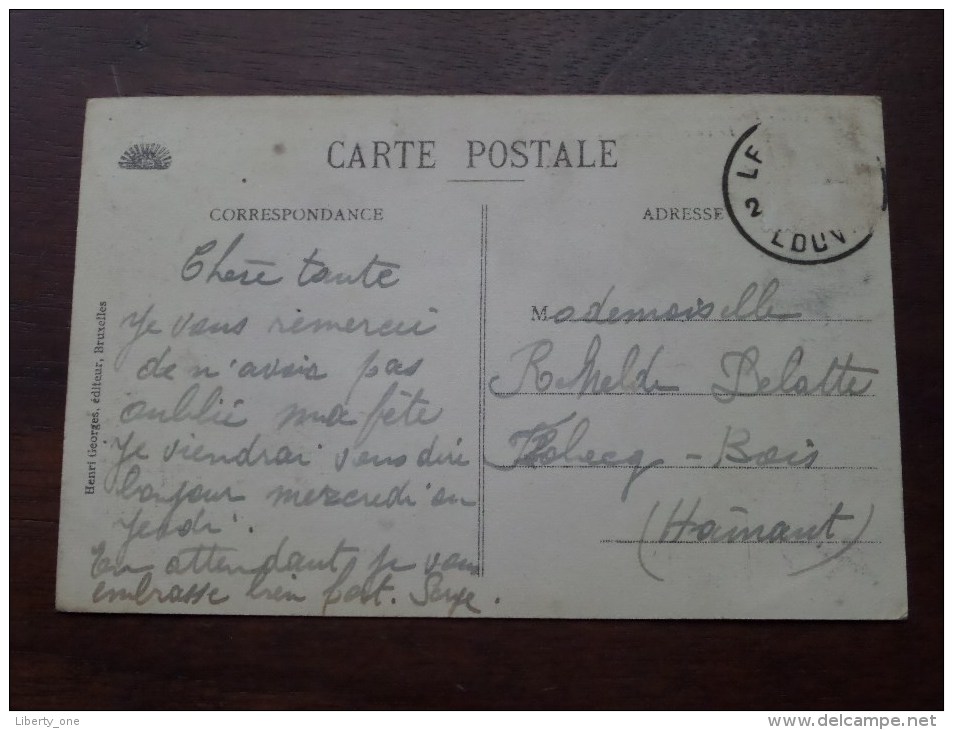 CARTE POSTALE
CORRESPONDANCE
ADRESSE
LE
2
LOUV
Henri Georges, éditeur, Bruxelles
Chère tante
Je vous remercie
de n'avoir pas
oublié ma fête
Je viendrai vous dire
bonjour mercredi ou
jeudi.
En attendant je vous
embrasse bien fort.
Mademoiselle
Delatte
Flobecq - Bois
(Hainaut)
Liberty_one
www.delcampe.net